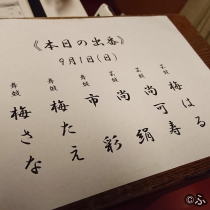 《本日の出番》
9月1日(日)
芸妓 梅はる
芸妓 尚可寿
芸妓 尚絹
舞妓 市彩
舞妓 梅たえ
舞妓 梅さな
©ふ